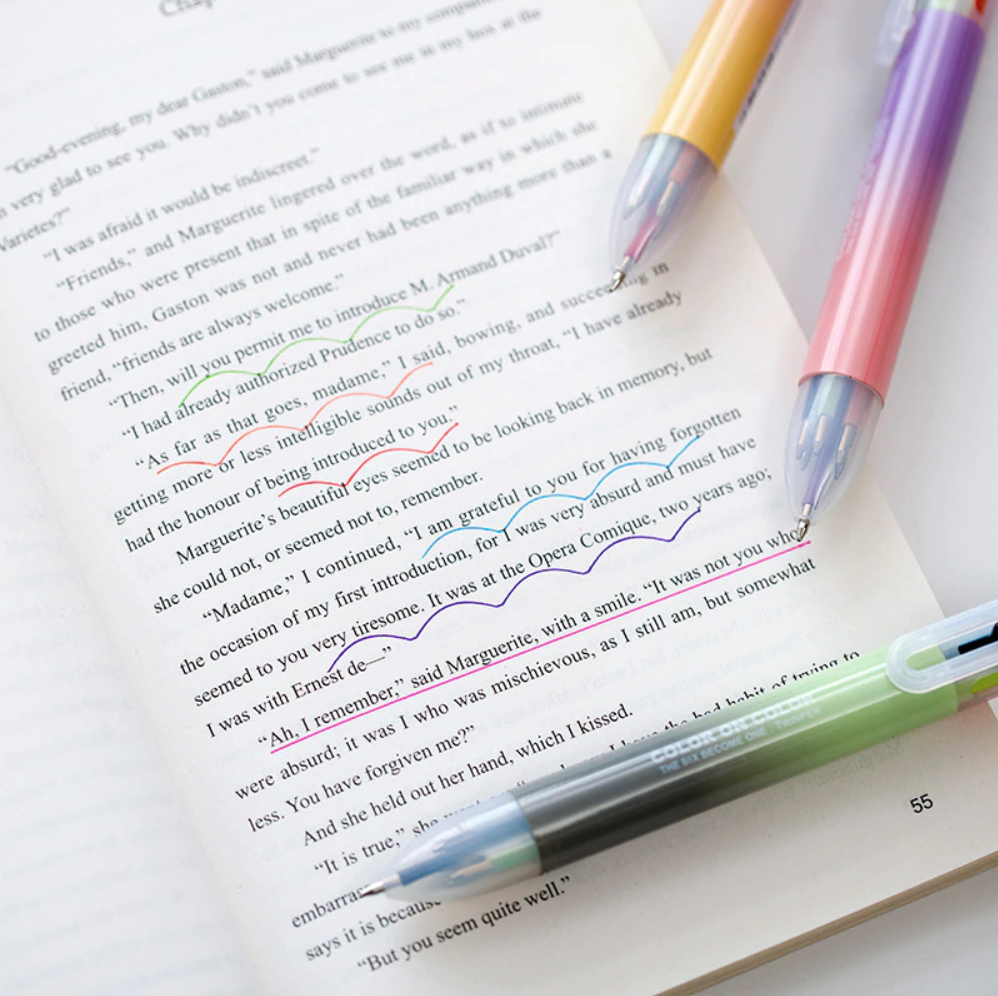 Chap
“Good-evening, my dear Gaston,” said Marguerite to my compani
very glad to see you. Why didn’t you come to see me in my box at the
Varietes?”
“I was afraid it would be indiscreet.”
“Friends,” and Marguerite lingered over the word, as if to intimate
to those who were present that in spite of the familiar way in which she
greeted him, Gaston was not and never had been anything more than a
friend, “friends are always welcome.”
“Then, will you permit me to introduce M. Armand Duval?”
“I had already authorized Prudence to do so.”
“As far as that goes, madame,” I said, bowing, and succ g in
getting more or less intelligible sounds out of my throat, “I have already
had the honour of being introduced to you.”
Marguerite’s beautiful eyes seemed to be looking back in memory, but
she could not, or seemed not to, remember.
“Madame,” I continued, “I am grateful to you for having forgotten
the occasion of my first introduction, for I was very absurd and must have
seemed to you very tiresome. It was at the Opera Comique, two years ago;
I was with Ernest de—”
“Ah, I remember,” said Marguerite, with a smile. “It was not you who
were absurd; it was I who was mischievous, as I still am, but somewhat
less. You have forgiven me?”
And she held out her hand, which I kissed.
“It is true,” she the bad habit of trying to
embarras
says it is because
“But you seem quite well.”
55
COLOR ON COLOR
THE SIX BECOME ONE · TWINPEN